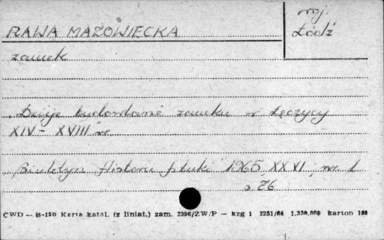 RAWA MAZOWIECKA
woj.
Łódź
zamek
Dzieje budowlane zamku w Łęczycy
XIV - XVIII w.
Biuletyn Historii Sztuki 1965 XXVI, nr. 1
s. 76
CWD — B-150 Karta katal. (z liniat.) zam. 2296/ZW/P — kzg 1 2251/64 1,320,000 karton 180